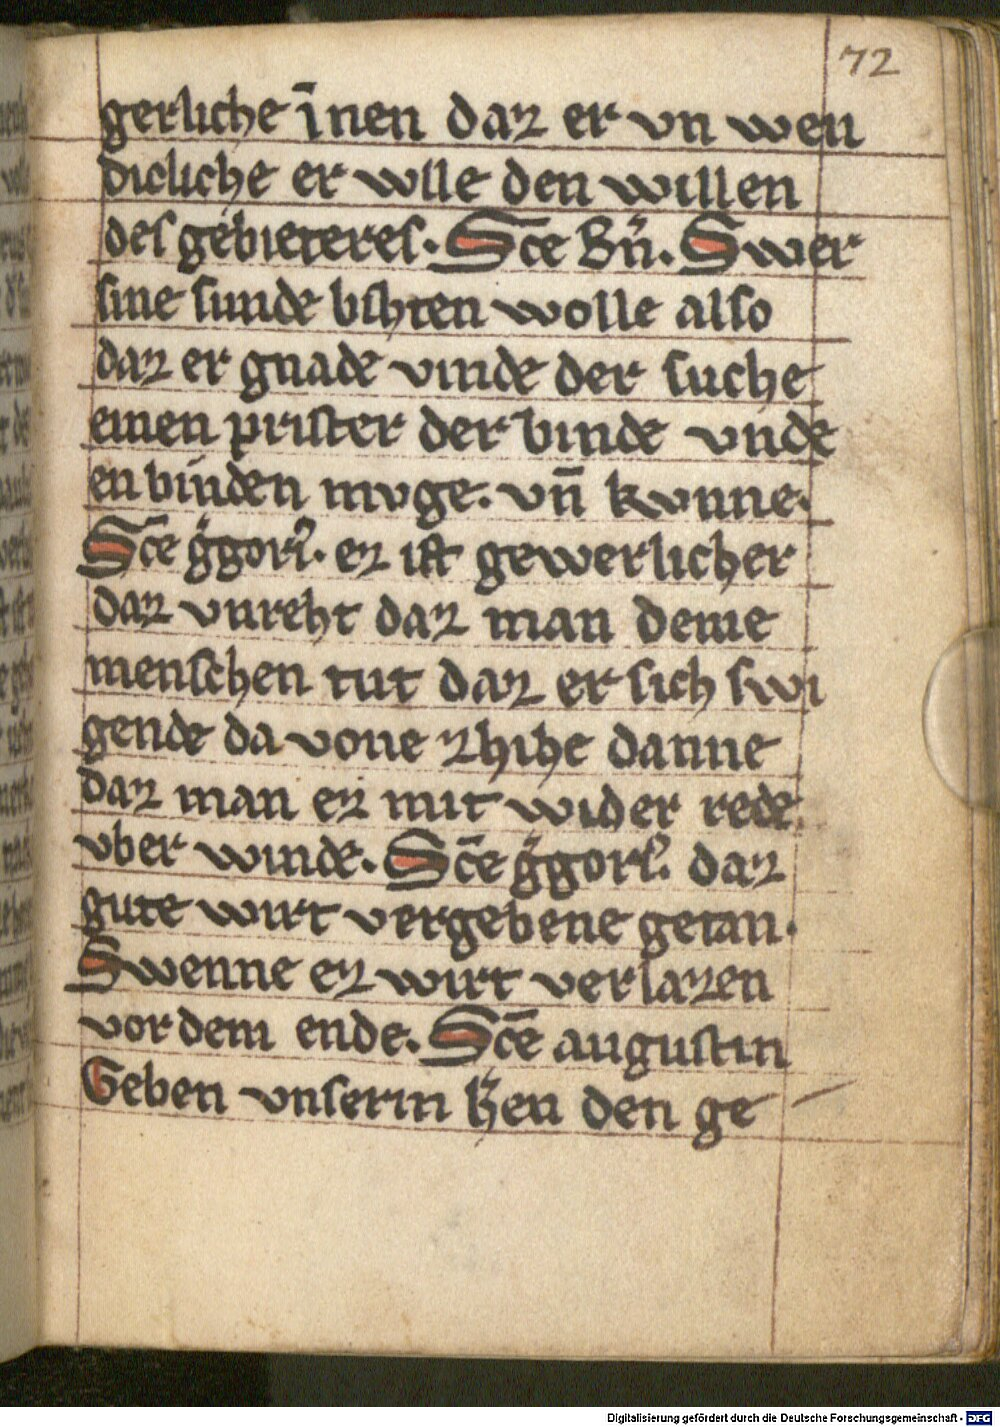 72
gerliche īnen daz er vn wen
dicliche er wlle den willen
des gebieteres. Sc̄e Bn̄. Swer
sine sunde bihten wolle also
daz er gnade vinde der suche
einen prister der binde vnde
en binden mvge. vn̄ kvnne.
Sc̄e gͥgorꝰ. ez ist gewerlicher
daz vnreht daz man deme
menschen tut daz er sich swi
gende da vone zhihe danne
daz man ez mit wider rede
vber winde. Sc̄e gͥgorꝰ. daz
gute wirt vergebene getan.
Swenne ez wirt verlazen
vor dem ende. Sc̄e augustin
Geben vnserm h̄en den ge
Digitalisierung gefördert durch die Deutsche Forschungsgemeinschaft - DFG